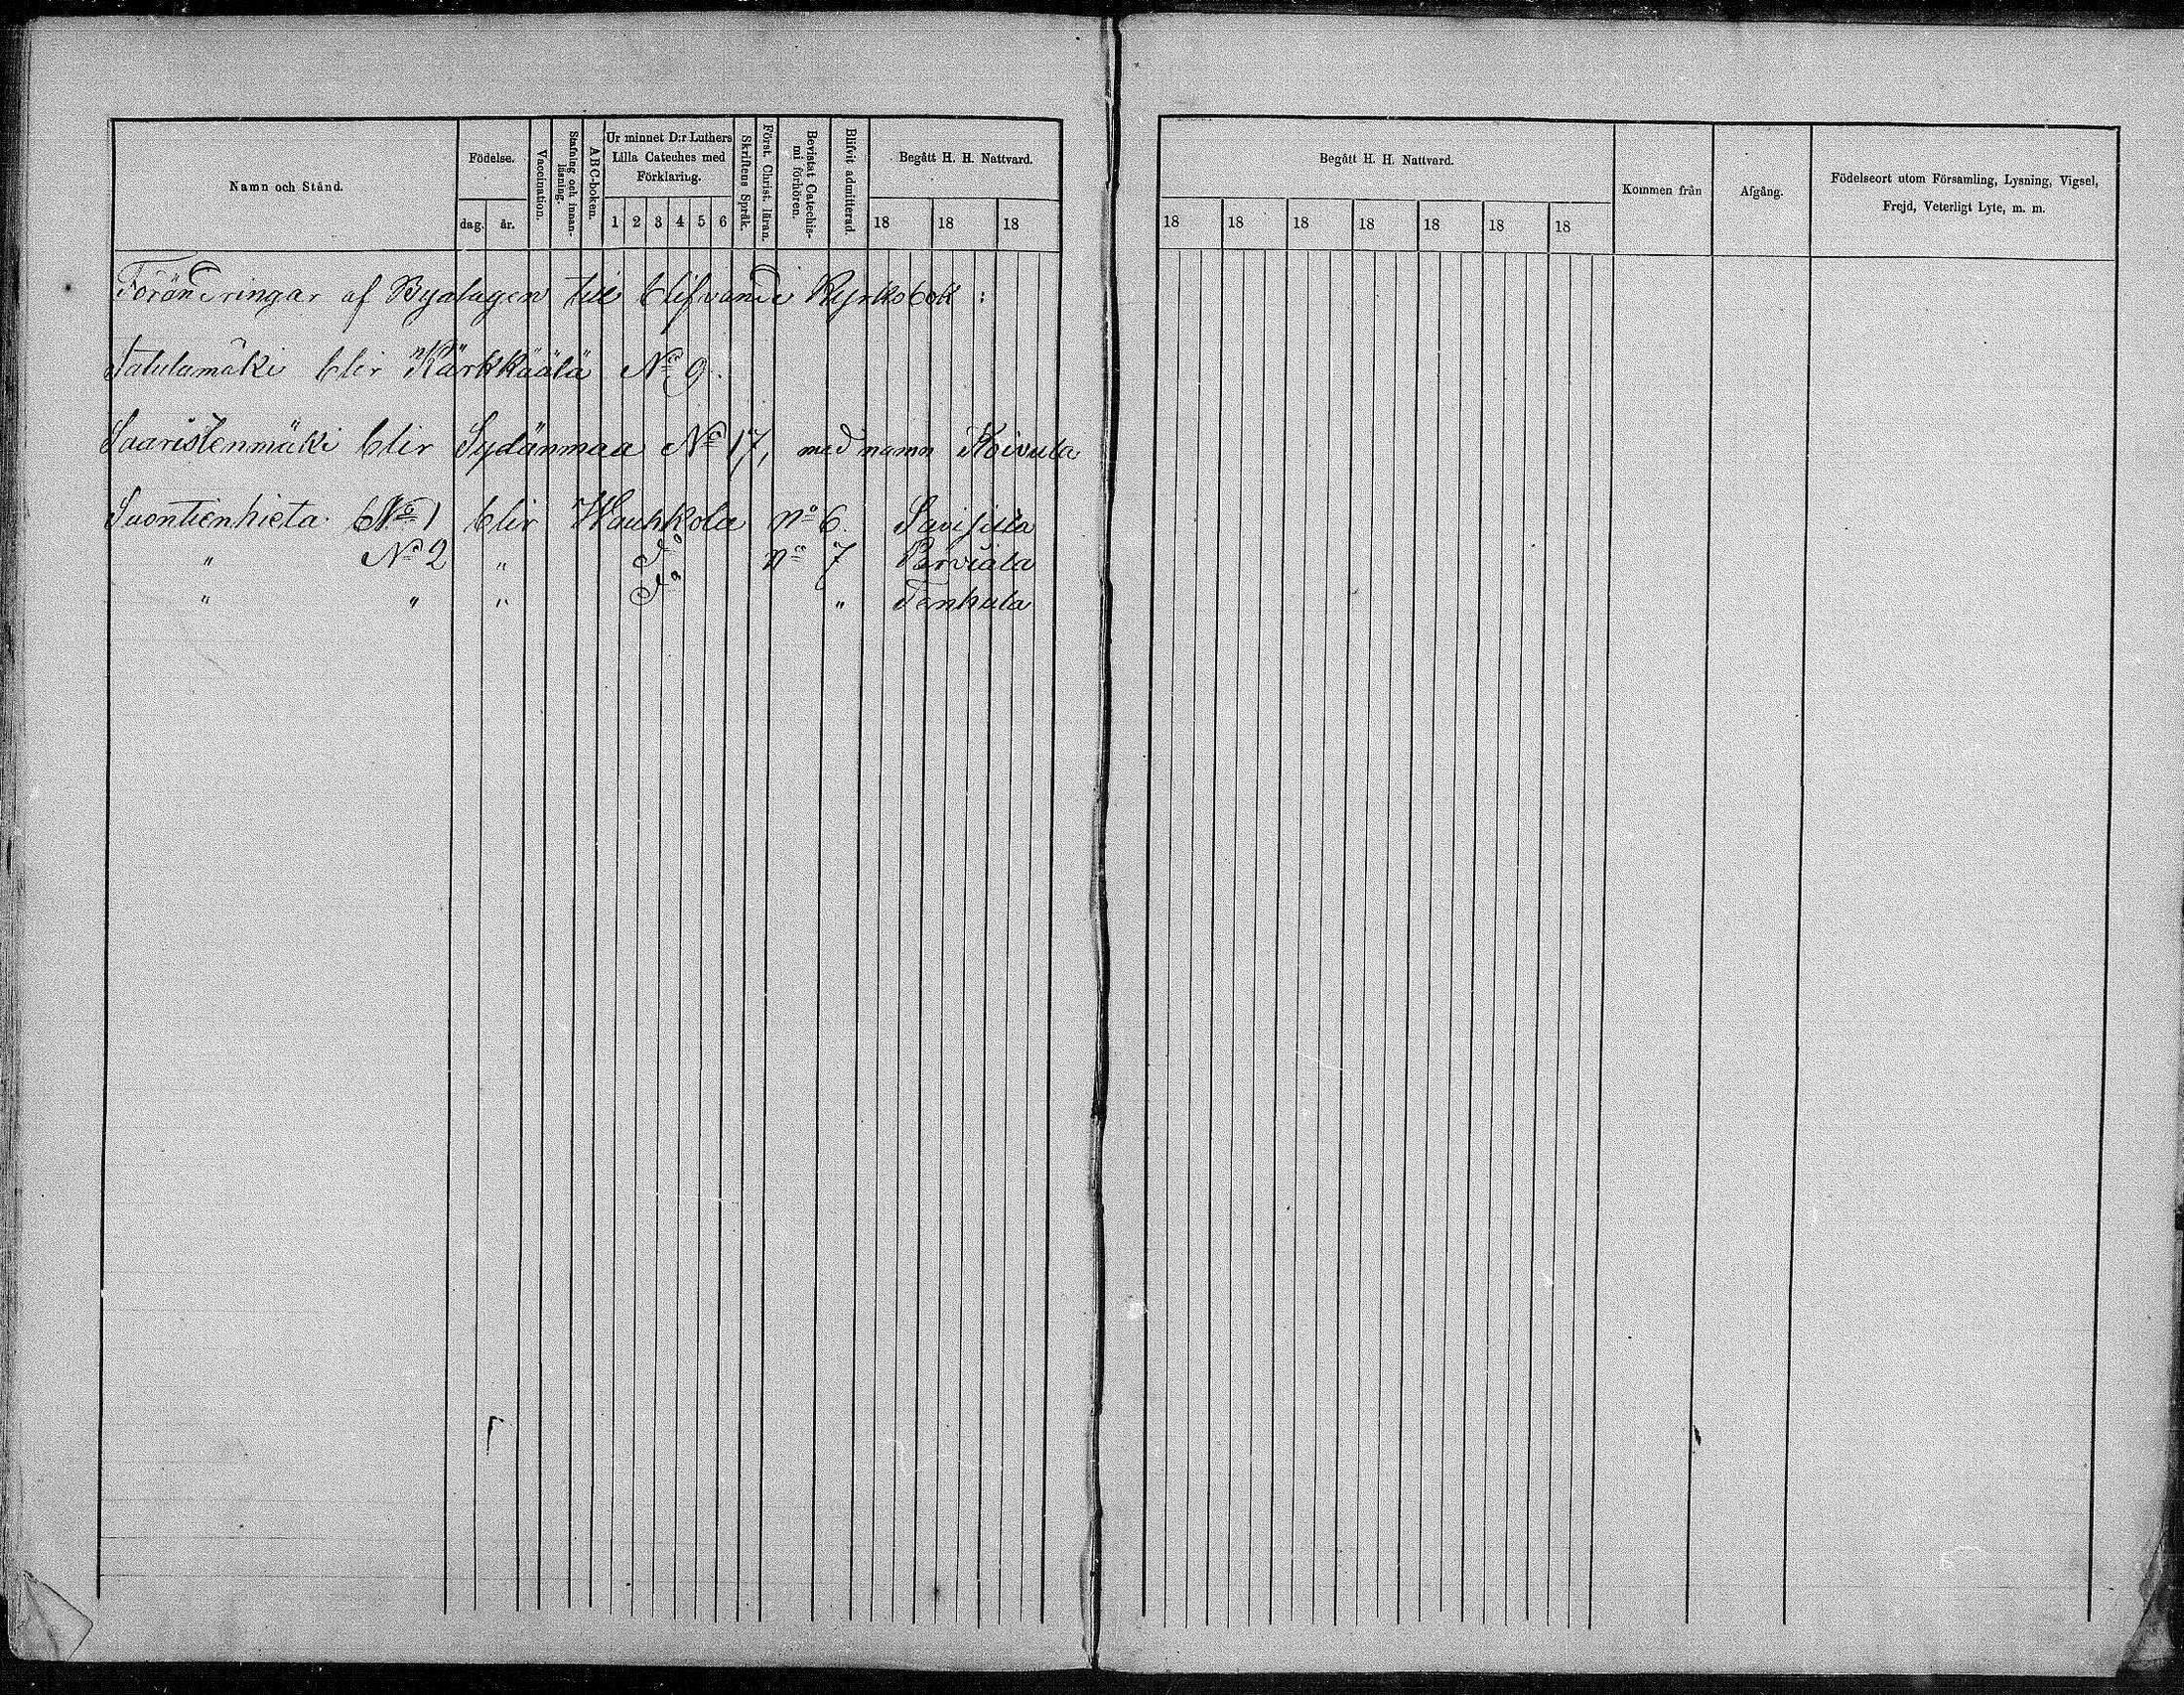 Namn och Stånd.
Födelse.
dag.
år.
Vaccination.
Stafning och innan-
läsning.
ABC-boken.
Ur minnet D:r Luthers
Lilla Cateches med
Förklaring.
1 2 3 4 5 6
Skriftens Språk.
Först. Christ. läran.
Bevistat Catechis-
mi förhören.
Blifvit admitterad.
Begått H. H. Nattvard.
18 18 18
Förändringar af Byalagen till blifvande Kyrkobok :
Jatulamäki blir Kärkkäälä No 9.
Saaristenmäki blir Sydänmaa No 17, med namn Koivula
Suontienhieta No 1 blir Hauhkola no 6. Savisilla
" No 2 " do no 7 Perviälä
" " " do " Tenhula
Begått H. H. Nattvard.
18 18 18 18 18 18 18
Kommen från
Afgång.
Födelseort utom Församling, Lysning, Vigsel,
Frejd, Veterligt Lyte, m. m.